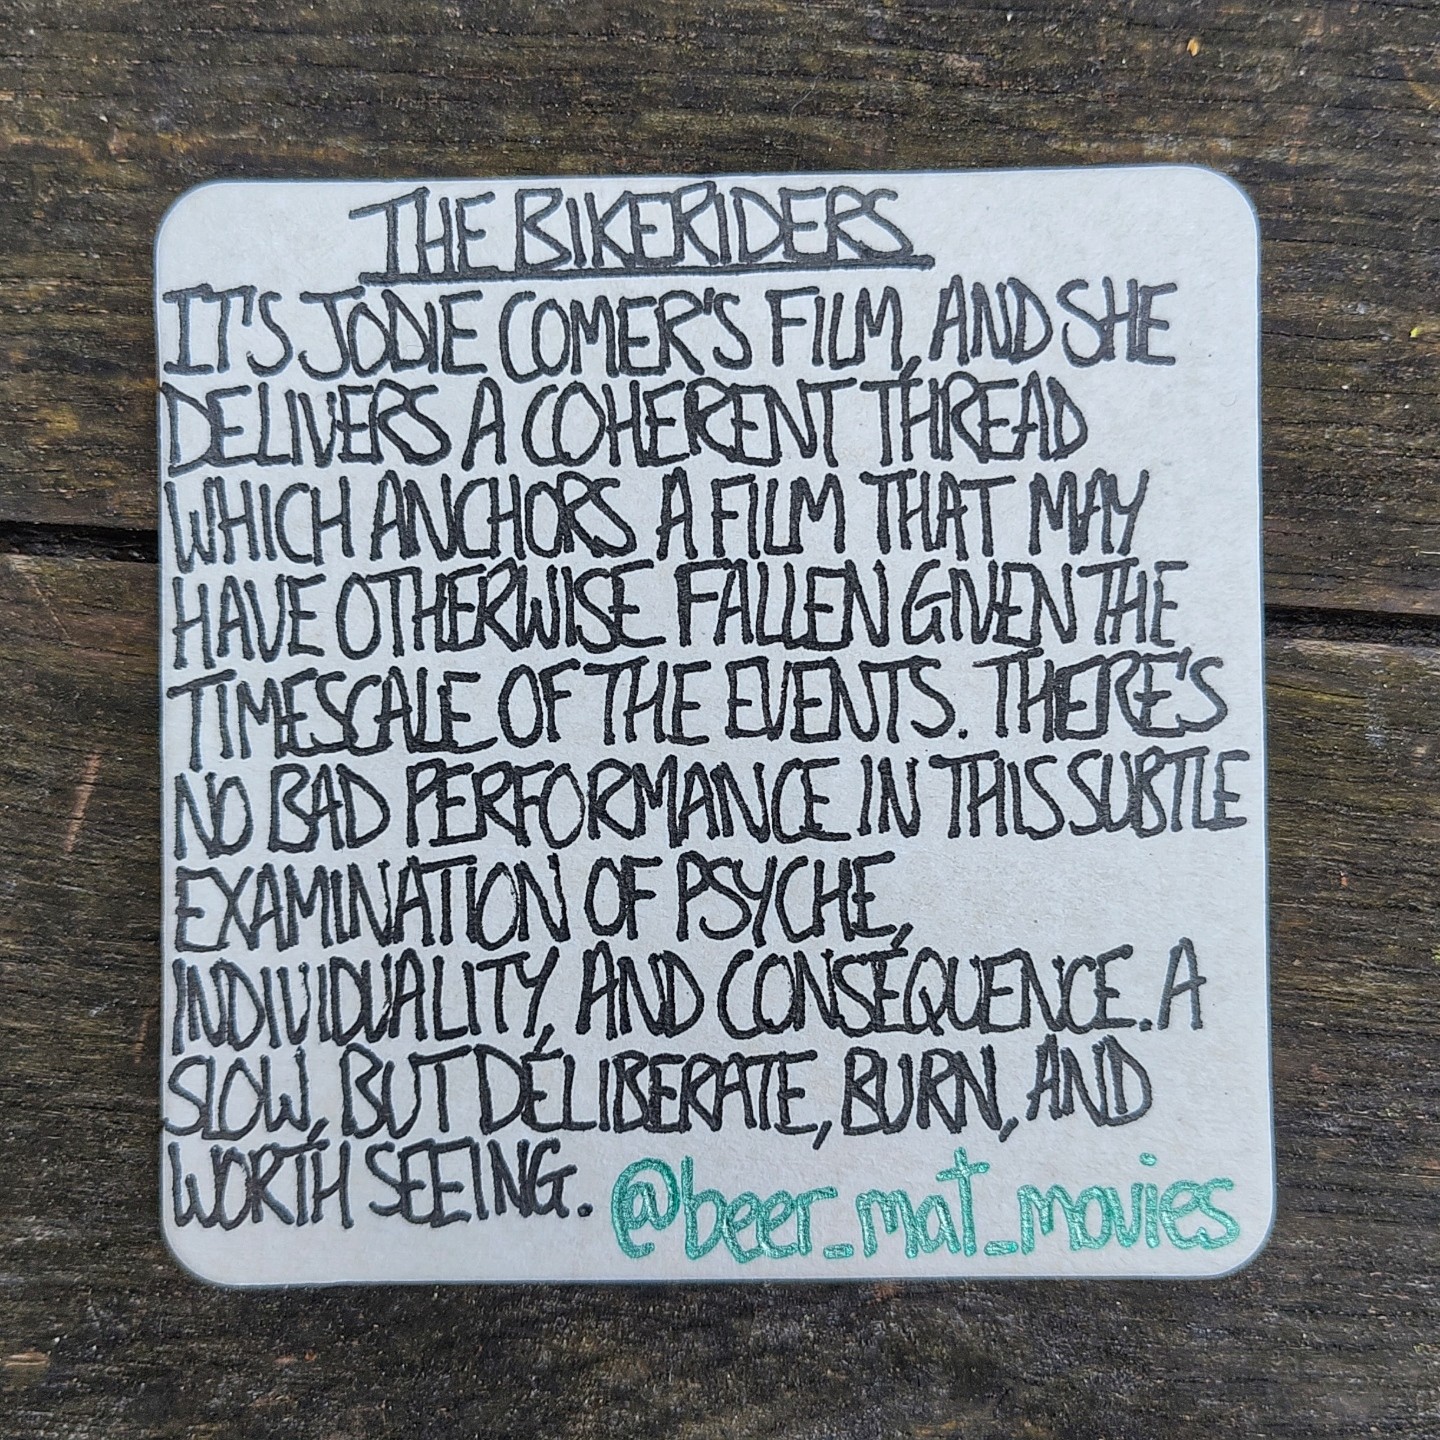 THE BIKERIDERS
IT'S JODIE COMER'S FILM, AND SHE
DELIVERS A COHERENT THREAD
WHICH ANCHORS A FILM THAT MAY
HAVE OTHERWISE FALLEN GIVEN THE
TIMESCALE OF THE EVENTS. THERE'S
NO BAD PERFORMANCE IN THIS SUBTLE
EXAMINATION OF PSYCHE,
INDIVIDUALITY, AND CONSEQUENCE. A
SLOW, BUT DELIBERATE, BURN, AND
WORTH SEEING. @beer_mat_movies